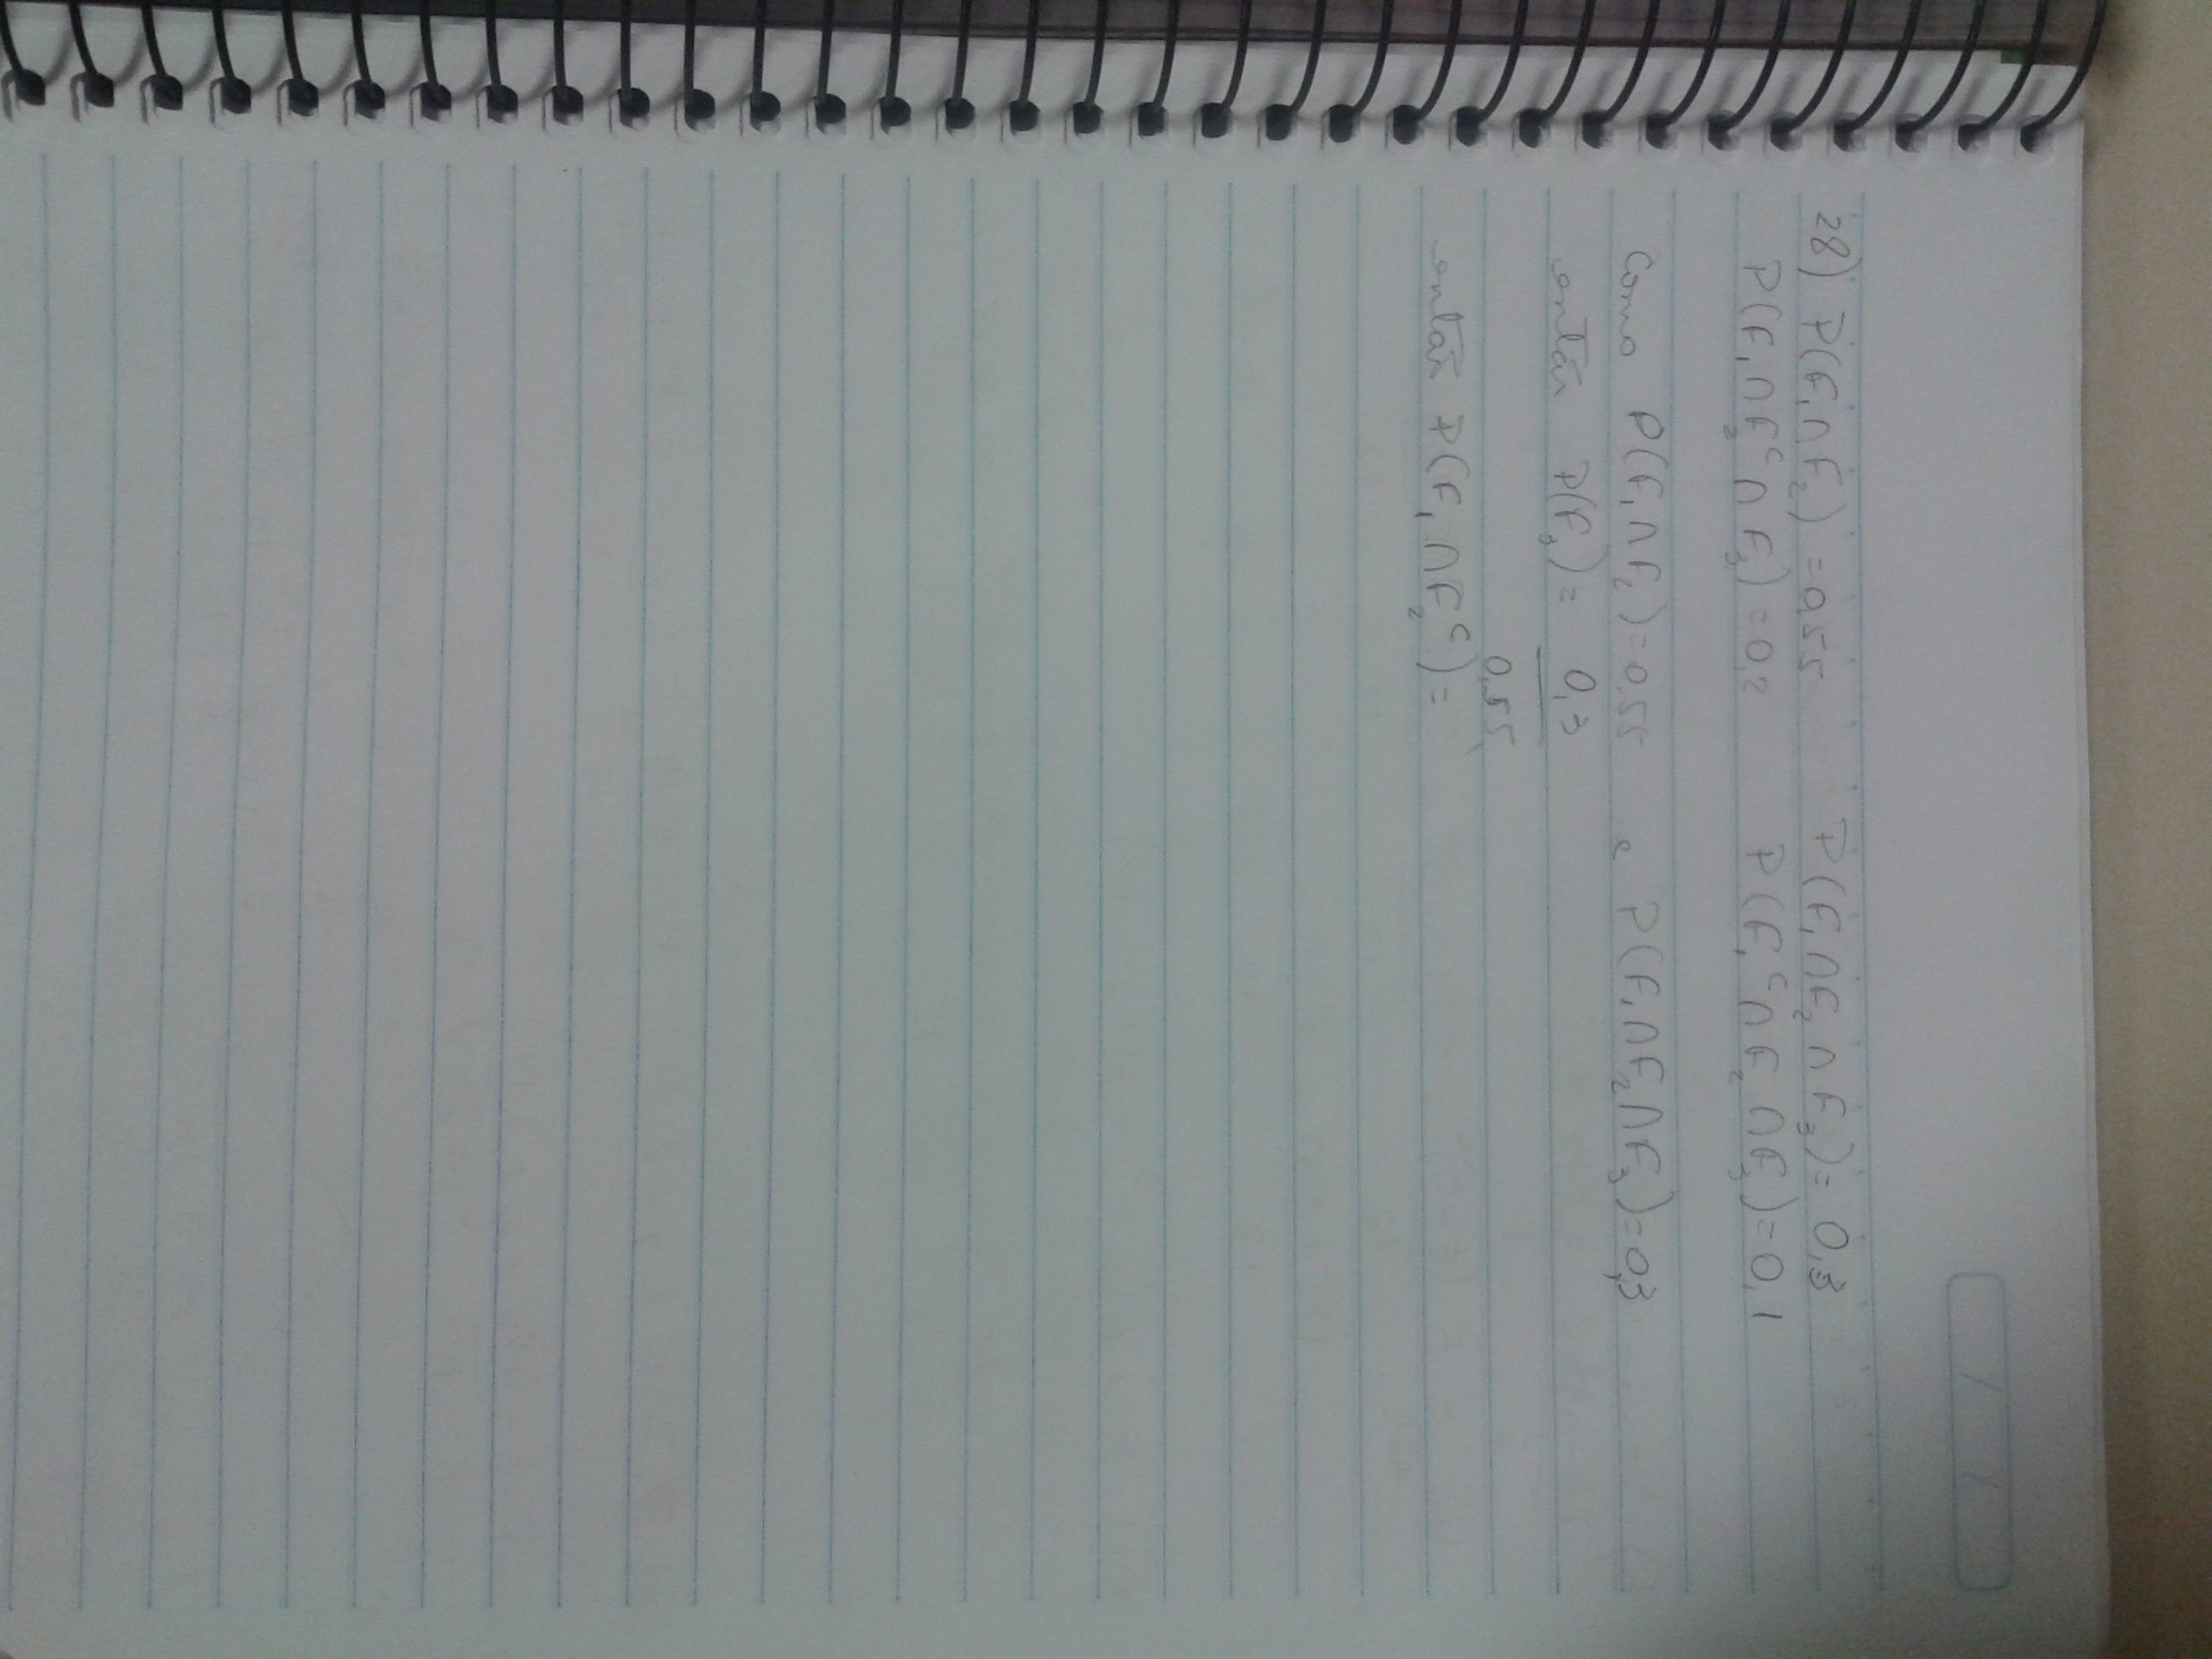 28) P(F₁∩F₂) = 0,55 P(F₁∩F₂∩F₃) = 0,3
P(F₁∩F₂ᶜ∩F₃) = 0,2 P(F₁ᶜ∩F₂∩F₃) = 0,1
Como P(F₁∩F₂) = 0,55 e P(F₁∩F₂∩F₃) = 0,3
então P(F₃) = 0,3
0,55
então P(F₁∩F₂ᶜ) =
/ /